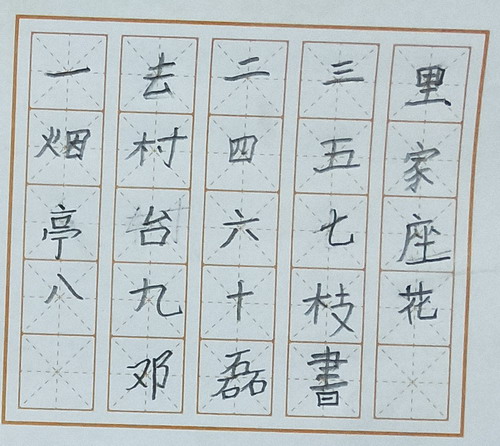 一去二三里
烟村四五家
亭台六七座
八九十枝花
邓磊書